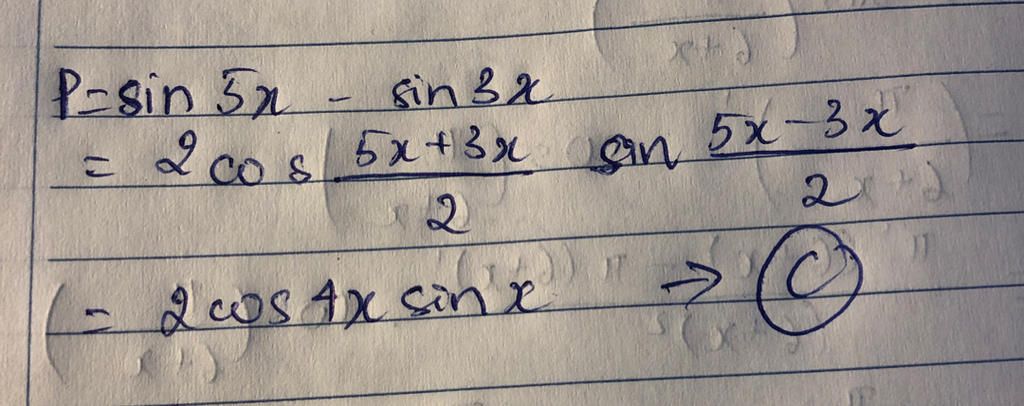 P = sin 5x - sin 3x
= 2 cos \frac{5x+3x}{2} sin \frac{5x-3x}{2}
= 2 cos 4x sin x → C